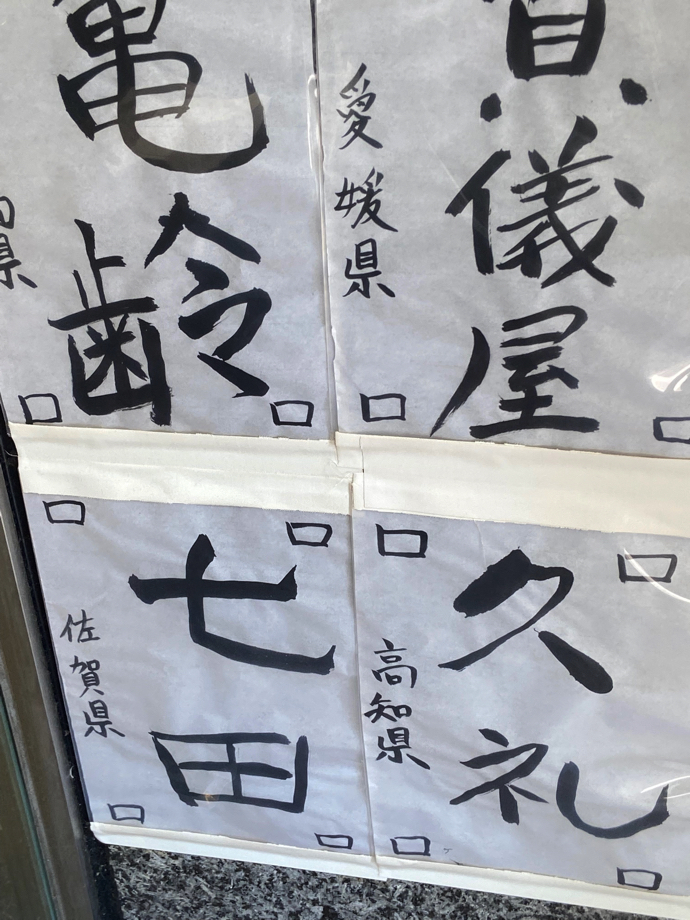 儀屋
愛媛県
亀齢
県
久礼
高知県
七田
佐賀県